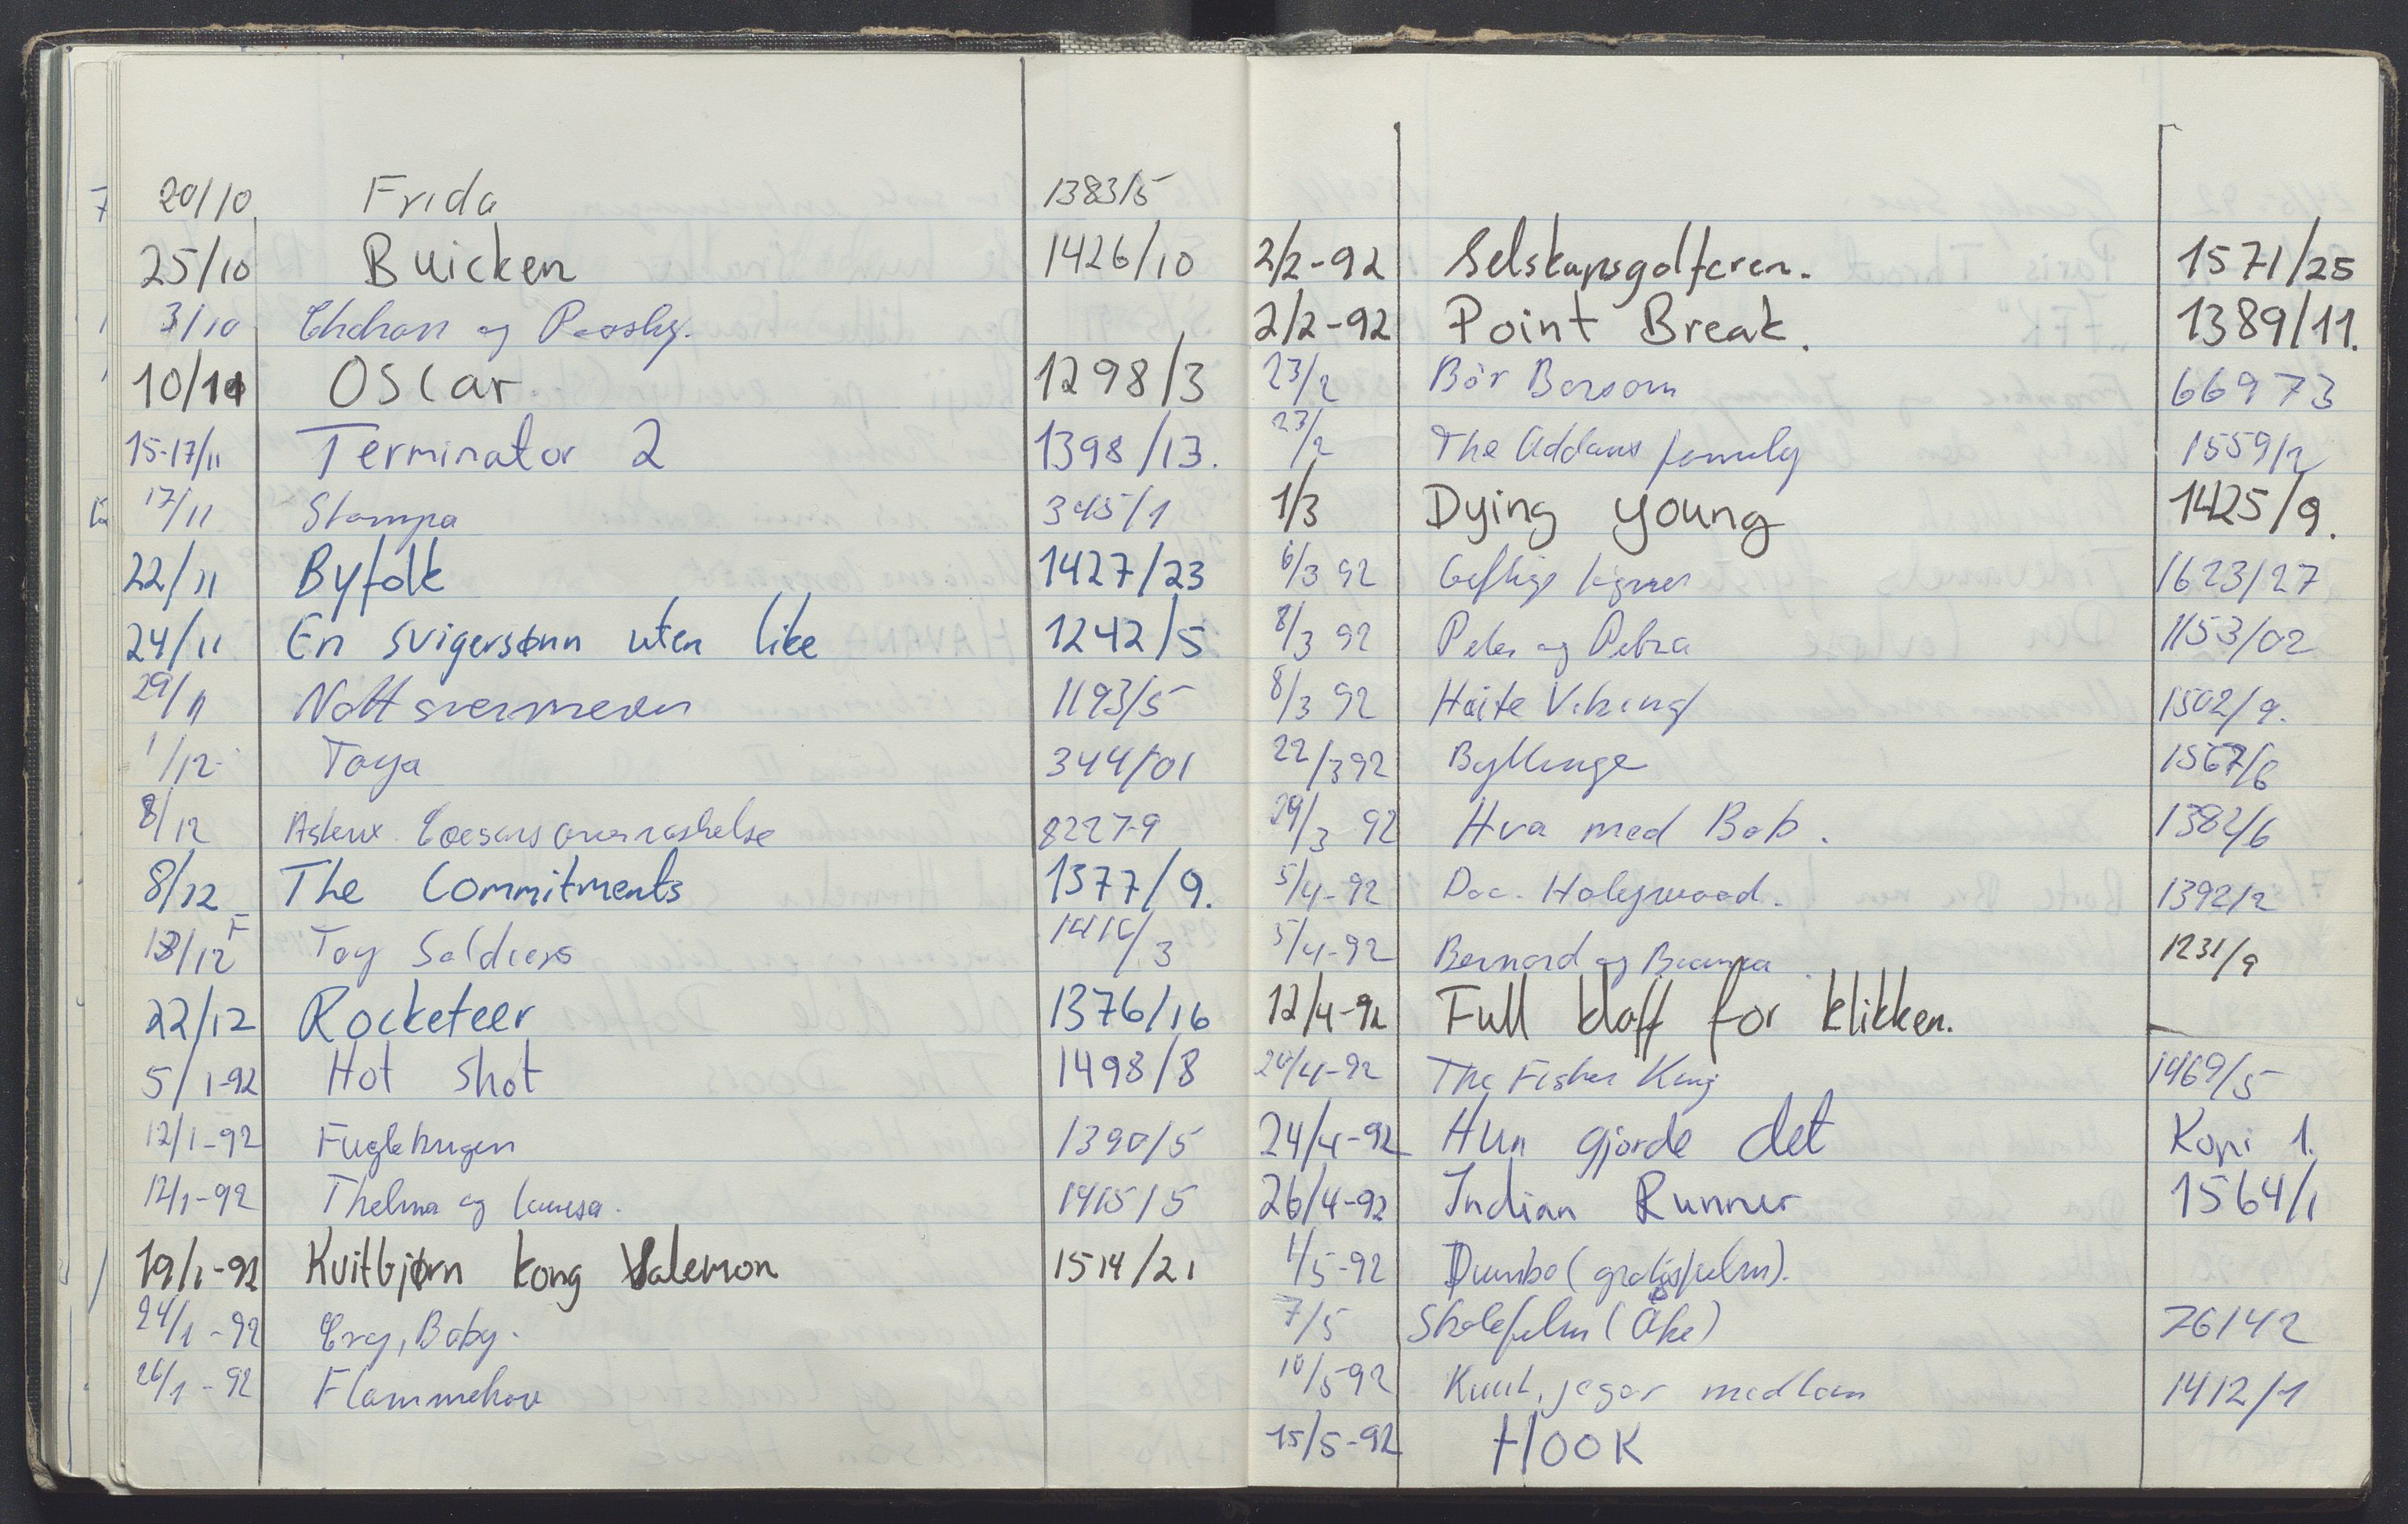 20/10 Frida 1383/5
25/10 Buicken 1426/10
3/10 og
10/11 Oscar. 1298/3
15-17/11 Terminator 2 1398/13.
17/11 Stampa 345/1
22/11 Byfolk 1427/23
24/11 En svigersønn uten like 1242/5
29/11 1193/5
1/12 Taya 344/01
8/12 Asterix 82279
8/12 The Commitments 1377/9.
13/12 F Toy Soldiers /3
22/12 Rocketeer 1376/16
5/1-92 Hot Shot 1498/8
12/1-92 Fuglekrigen 1390/5
12/1-92 Thelma og Louisa. 1415/5
19/1-92 Kvitbjørn kong Valemon 1514/21
24/1-92 Cry, Baby.
26/1-92 Flammehav
2/2-92 Selskapsgolferen. 1571/25
2/2-92 Point Break. 1389/11.
23/2 Bør Børson 66973
23/2 The Addams family 1559/2
1/3 Dying young 1425/9.
6/3 92 1623/27
8/3 92 Peter og Petra 1153/02
8/3 92 Håite Viking 1502/9.
22/3 92 Byllinge 1567/6
29/3 92 Hva med Bob. 1382/6
5/4-92 Doc. Holywood. 1392/2
5/4-92 Bernard og Bianca. 1231/9
12/4-92 Full klaff for klikken. —
20/4-92 The Fisher King 1469/5
24/4-92 Hun gjorde det Kopi 1.
26/4-92 Indian Runner 1564/1
1/5-92 Dumbo (gratisfilm).
7/5 Skolefilm (Åke) 76142
10/5-92 jeger mellom 1412/1
15/5-92 HOOK